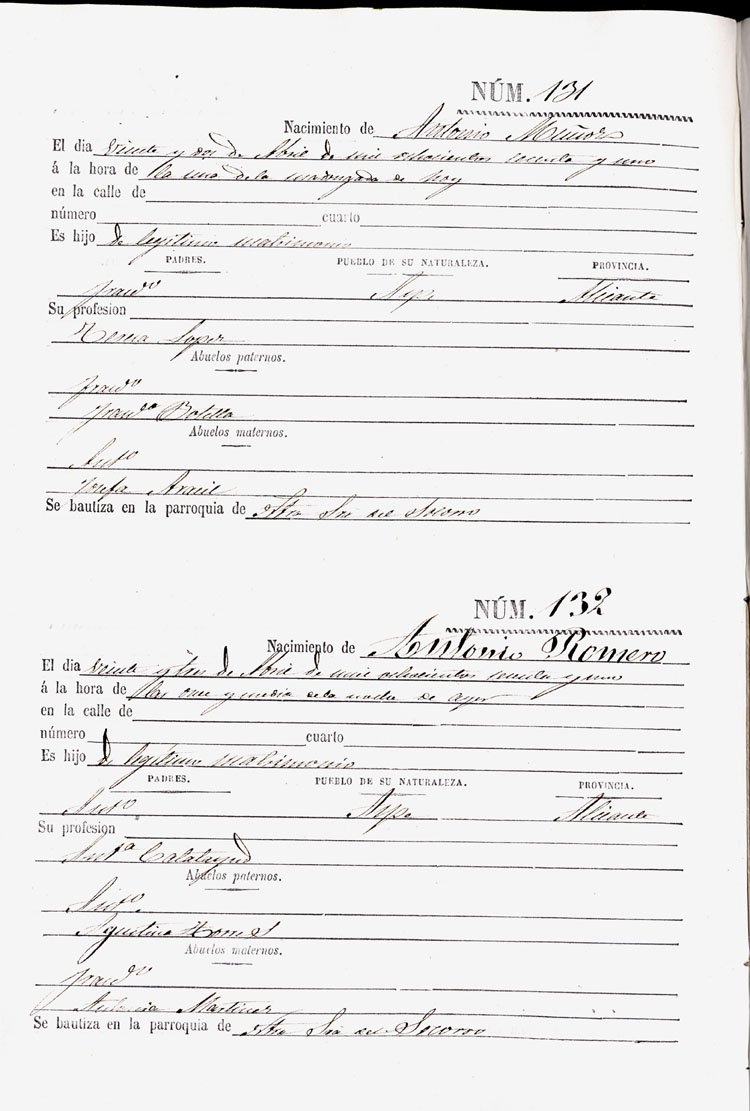 NÚM. 131
Nacimiento de Antonio Muñoz
El dia veinte y dos de Abril de mil ochocientos sesenta y uno
á la hora de la una de la madrugada de hoy
en la calle de
número cuarto
Es hijo de legitimo matrimonio
PADRES. PUEBLO DE SU NATURALEZA. PROVINCIA.
Franco Aspe Alicante
Su profesion
Teresa Lopez
Abuelos paternos.
Franco
Franca Botella
Abuelos maternos.
Anto
Josefa
Se bautiza en la parroquia de Ntra Sra del Socorro
NÚM. 132
Nacimiento de Antonio Romero
El dia veinte y tres de Abril de mil ochocientos sesenta y uno
á la hora de las once y media de la noche de ayer
en la calle de
número cuarto
Es hijo de legitimo matrimonio
PADRES. PUEBLO DE SU NATURALEZA. PROVINCIA.
Anto Aspe Alicante
Su profesion
Anta Calatayud
Abuelos paternos.
Anto
Agustina Torres
Abuelos maternos.
Franco
Martinez
Se bautiza en la parroquia de Ntra Sra del Socorro